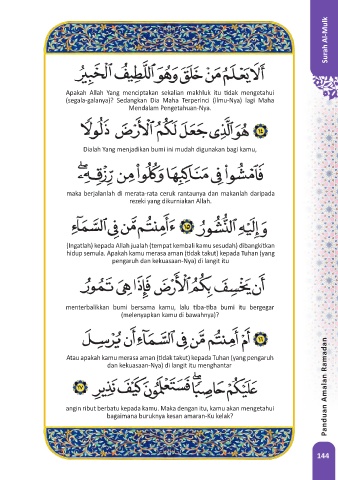 أَلَا يَعْلَمُ مَنْ خَلَقَ وَهُوَ ٱللَّطِيفُ ٱلْخَبِيرُ
Apakah Allah Yang menciptakan sekalian makhluk itu tidak mengetahui
(segala-galanya)? Sedangkan Dia Maha Terperinci (Ilmu-Nya) lagi Maha
Mendalam Pengetahuan-Nya.
١٤ هُوَ ٱلَّذِى جَعَلَ لَكُمُ ٱلْأَرْضَ ذَلُولًا
Dialah Yang menjadikan bumi ini mudah digunakan bagi kamu,
فَٱمْشُوا۟ فِى مَنَاكِبِهَا وَكُلُوا۟ مِن رِّزْقِهِۦ ۖ
maka berjalanlah di merata-rata ceruk rantaunya dan makanlah daripada
rezeki yang dikurniakan Allah.
وَإِلَيْهِ ٱلنُّشُورُ ١٥ ءَأَمِنتُم مَّن فِى ٱلسَّمَآءِ
(Ingatlah) kepada Allah jualah (tempat kembali kamu sesudah) dibangkitkan
hidup semula. Apakah kamu merasa aman (tidak takut) kepada Tuhan (yang
pengaruh dan kekuasaan-Nya) di langit itu
أَن يَخْسِفَ بِكُمُ ٱلْأَرْضَ فَإِذَا هِىَ تَمُورُ
menterbalikkan bumi bersama kamu, lalu tiba-tiba bumi itu bergegar
(melenyapkan kamu di bawahnya)?
١٦ أَمْ أَمِنتُم مَّن فِى ٱلسَّمَآءِ أَن يُرْسِلَ
Atau apakah kamu merasa aman (tidak takut) kepada Tuhan (yang pengaruh
dan kekuasaan-Nya) di langit itu menghantar
عَلَيْكُمْ حَاصِبًا ۖ فَسَتَعْلَمُونَ كَيْفَ نَذِيرِ ١٧
angin ribut berbatu kepada kamu. Maka dengan itu, kamu akan mengetahui
bagaimana buruknya kesan amaran-Ku kelak?
Surah Al-Mulk
Panduan Amalan Ramadan
144